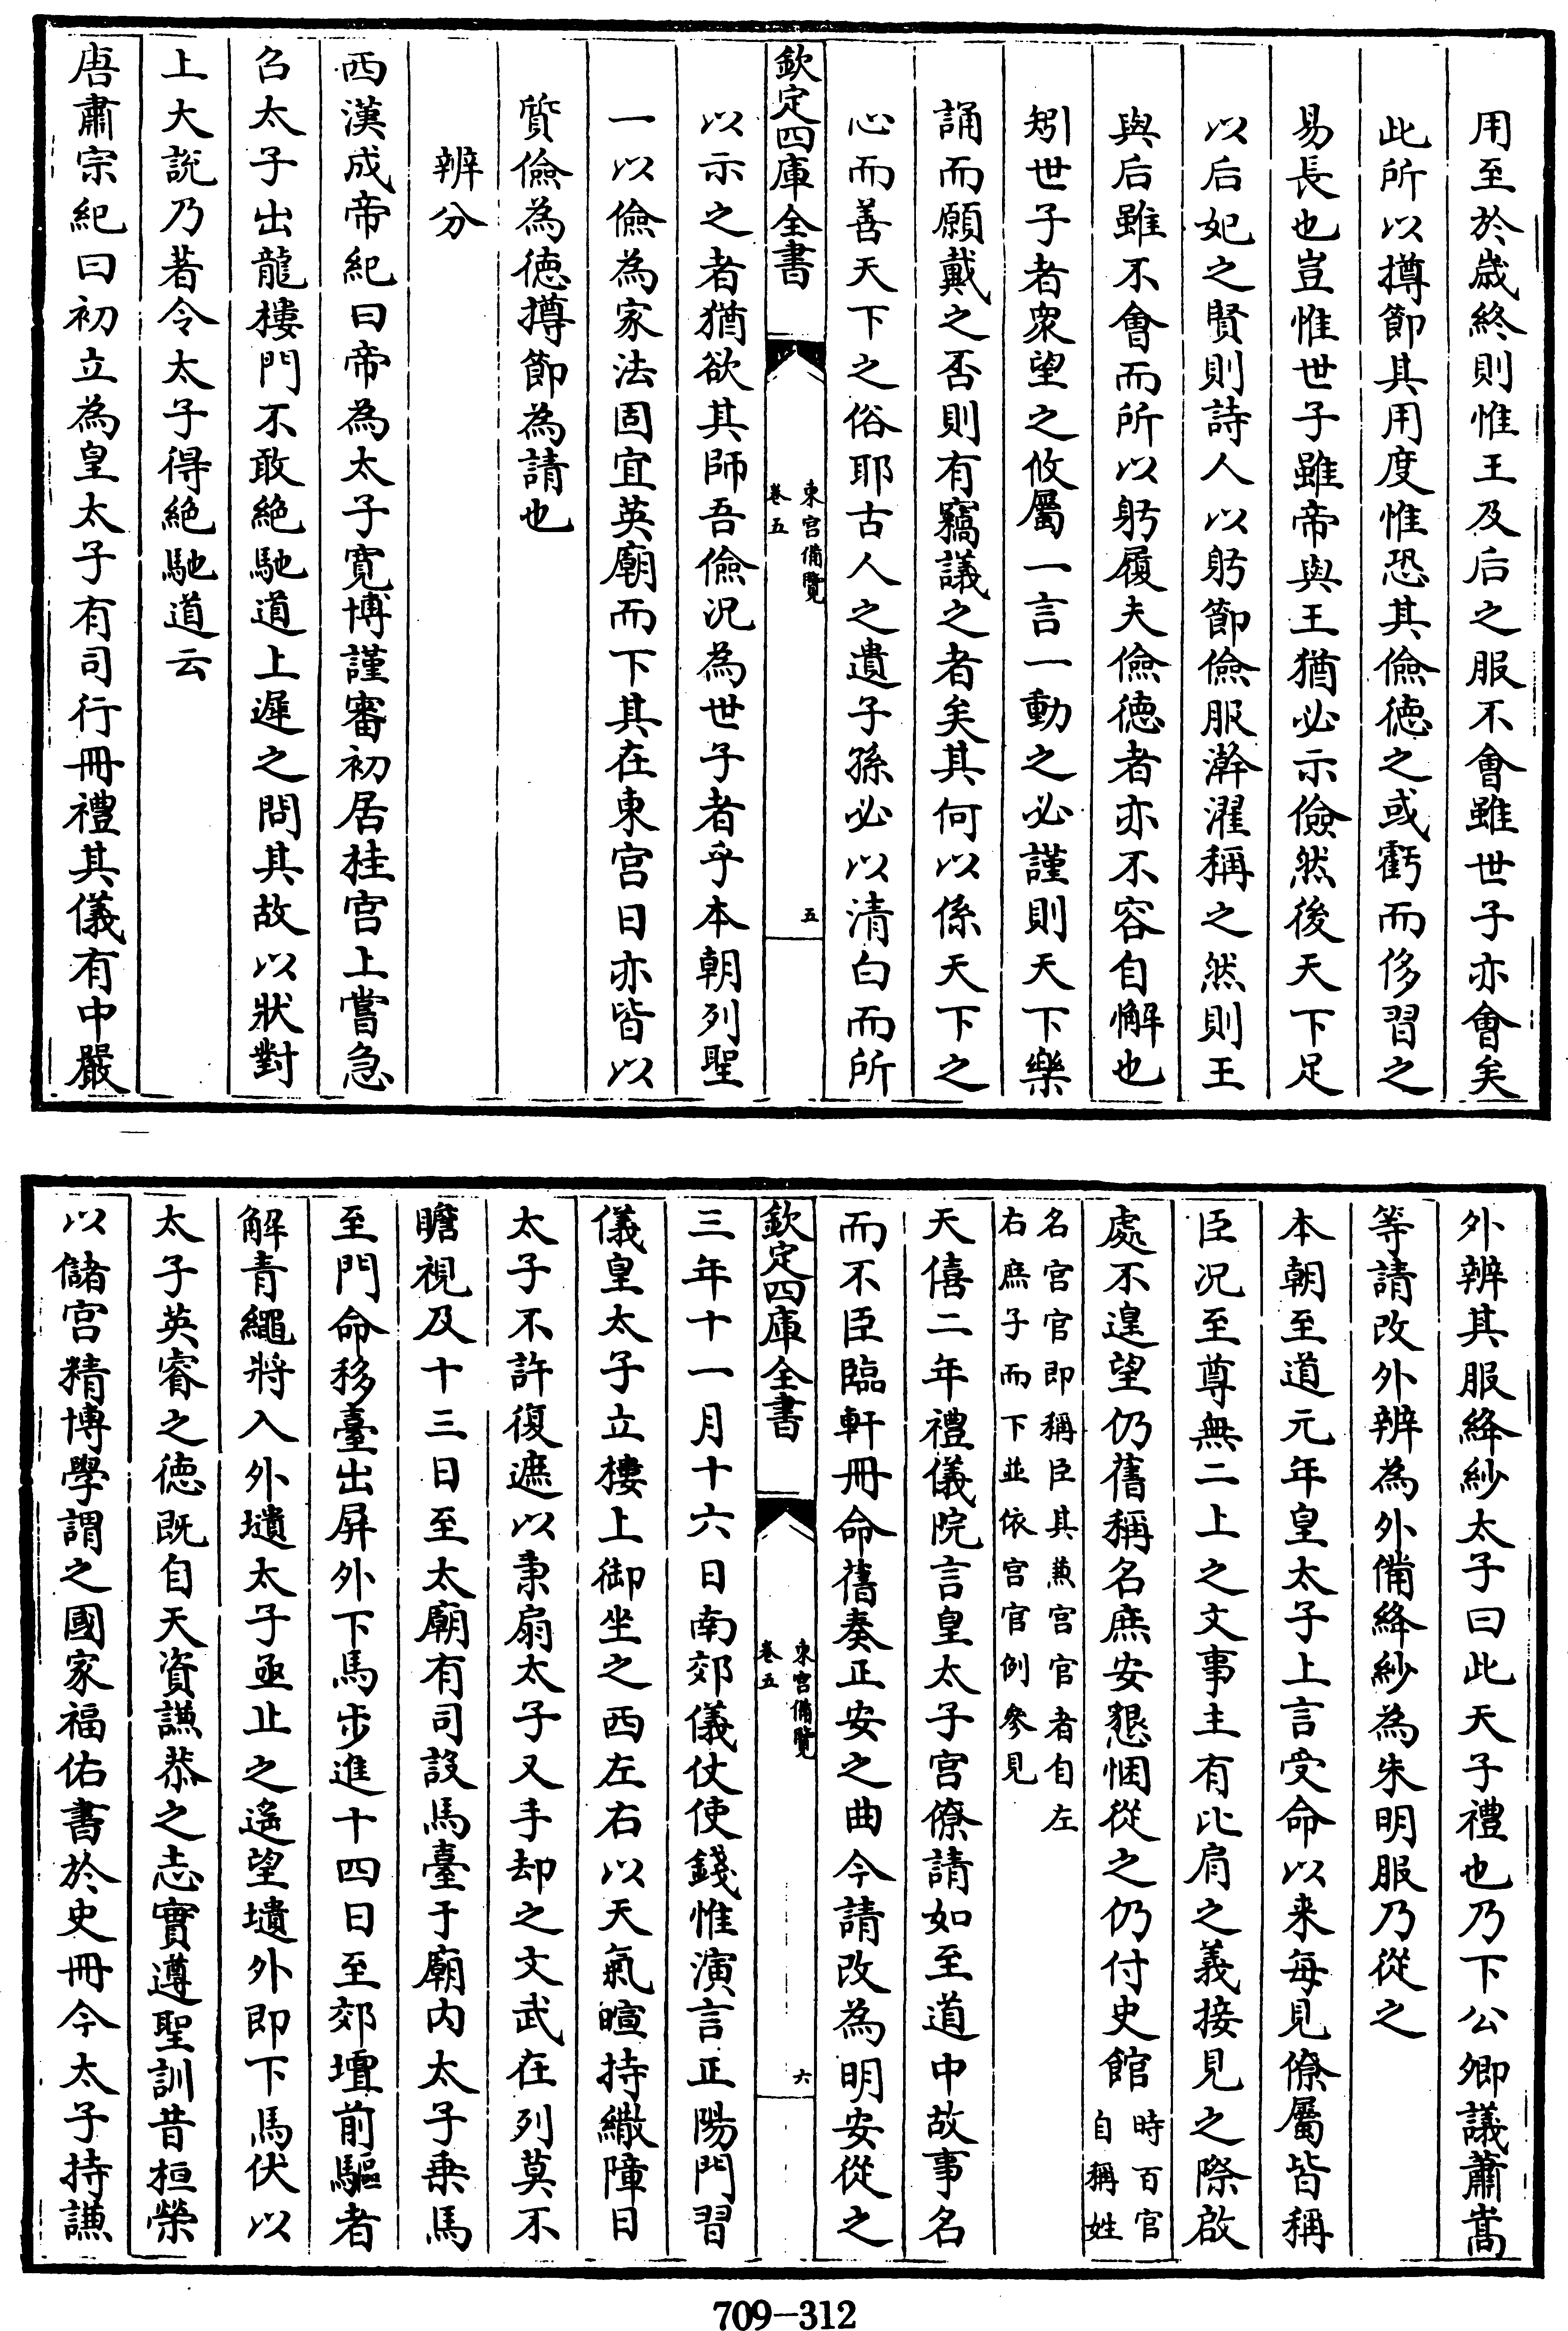 用至於歲終則惟王及后之服不會雖世子亦會矣
此所以撙節其用度惟恐其儉德之或虧而侈習之
易長也豈惟世子雖帝與王猶必示儉然後天下足
以后妃之賢則詩人以躬節儉服澣濯稱之然則王
與后雖不會而所以躬履夫儉德者亦不容自懈也
矧世子者衆望之攸屬一言一動之必謹則天下樂
誦而願戴之否則有竊議之者矣其何以係天下之
心而善天下之俗耶古人之遺子孫必以清白而所
欽定四庫全書
東宮備覽
卷五
五
以示之者猶欲其師吾儉況為世子者乎本朝列聖
一以儉為家法固宜英廟而下其在東宮日亦皆以
質儉為德撙節為請也
辨分
西漢成帝紀曰帝為太子寬博謹審初居桂宮上嘗急
召太子出龍樓門不敢絶馳道上遲之問其故以狀對
上大說乃著令太子得絶馳道云
唐肅宗紀曰初立為皇太子有司行冊禮其儀有中嚴
外辨其服絳紗太子曰此天子禮也乃下公卿議蕭嵩
等請改外辨為外備絳紗為朱明服乃從之
本朝至道元年皇太子上言受命以来每見僚屬皆稱
臣況至尊無二上之文事主有比肩之義接見之際啟
處不遑望仍舊稱名庶安懇悃從之仍付史館時百官自稱姓
名宮官即稱臣其兼宮官者自左右庶子而下並依宮官例參見
天僖二年禮儀院言皇太子宮僚請如至道中故事名
而不臣臨軒冊命舊奏正安之曲今請改為明安從之
欽定四庫全書
東宮備覽
卷五
六
三年十一月十六日南郊儀仗使錢惟演言正陽門習
儀皇太子立樓上御坐之西左右以天氣暄持繖障日
太子不許復遮以秉扇太子又手却之文武在列莫不
瞻視及十三日至太廟有司設馬臺于廟内太子乗馬
至門命移臺出屏外下馬步進十四日至郊壇前驅者
解青繩將入外壝太子亟止之遙望壝外即下馬伏以
太子英睿之德既自天資謙恭之志實遵聖訓昔桓榮
以儲宮精博學謂之國家福佑書於史冊今太子持謙
709-312